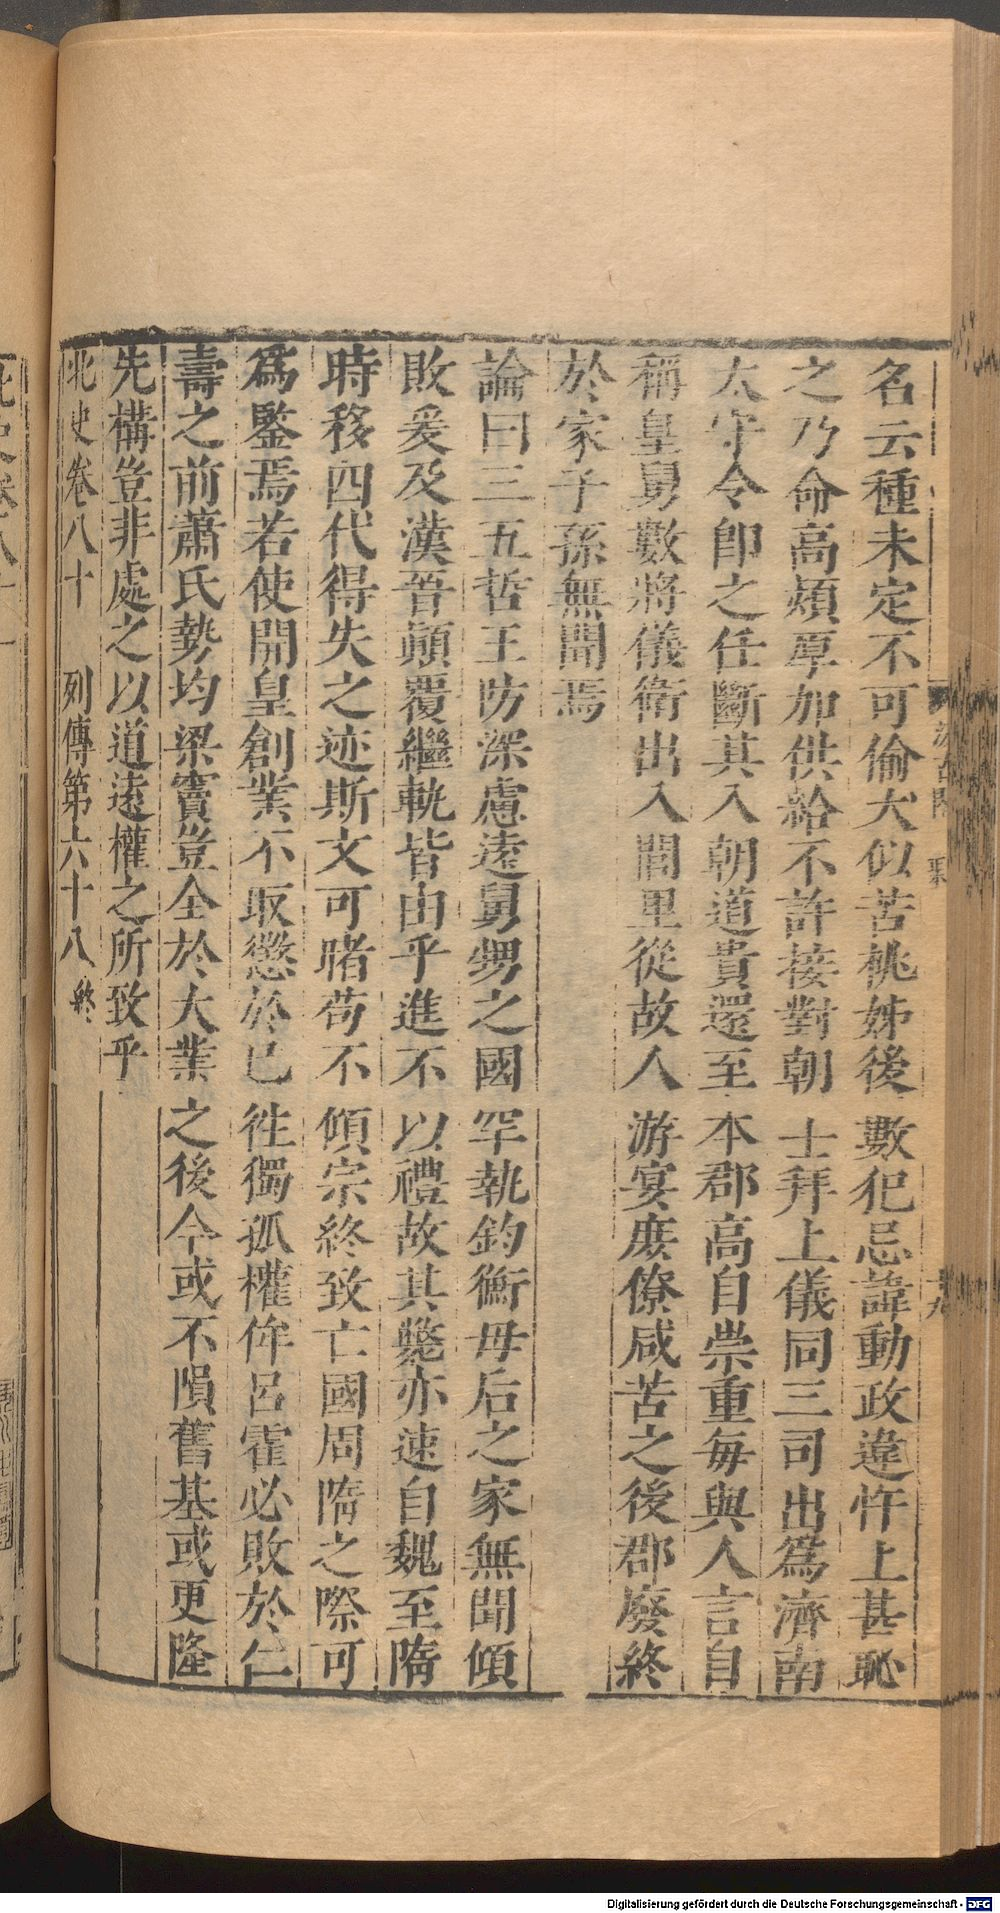 名云種未定不可偷大似苦桃姊後數犯忌諱動政違忤上甚恥
之乃命高熲厚加供給不許接對朝士拜上儀同三司出爲濟南
太守令卽之任斷其入朝道貴還至本郡高自崇重每與人言自
稱皇舅數將儀衛出入閭里從故人游宴庶僚咸苦之後郡廢終
於家子孫無聞焉
論曰三五哲王防深慮遠舅甥之國罕執鈞衡母后之家無聞傾
敗爰及漢晉顚覆繼軌皆由乎進不以禮故其斃亦速自魏至隋
時移四代得失之迹斯文可睹苟不傾宗終致亡國周隋之際可
爲鑒焉若使開皇創業不取懲於已徃獨孤權侔呂霍必敗於仁
壽之前蕭氏勢均梁竇豈全於大業之後今或不隕舊基或更隆
先構豈非處之以道遠權之所致乎
北史卷八十 列傳第六十八 終
Digitalisierung gefördert durch die Deutsche Forschungsgemeinschaft - DFG